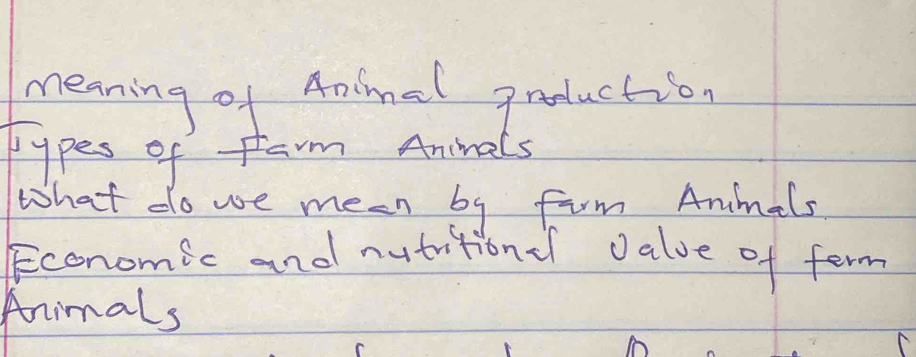 Meaning of Animal production
Types of Farm Animals
What do we mean by farm Animals.
Economic and nutritional value of farm
Animals